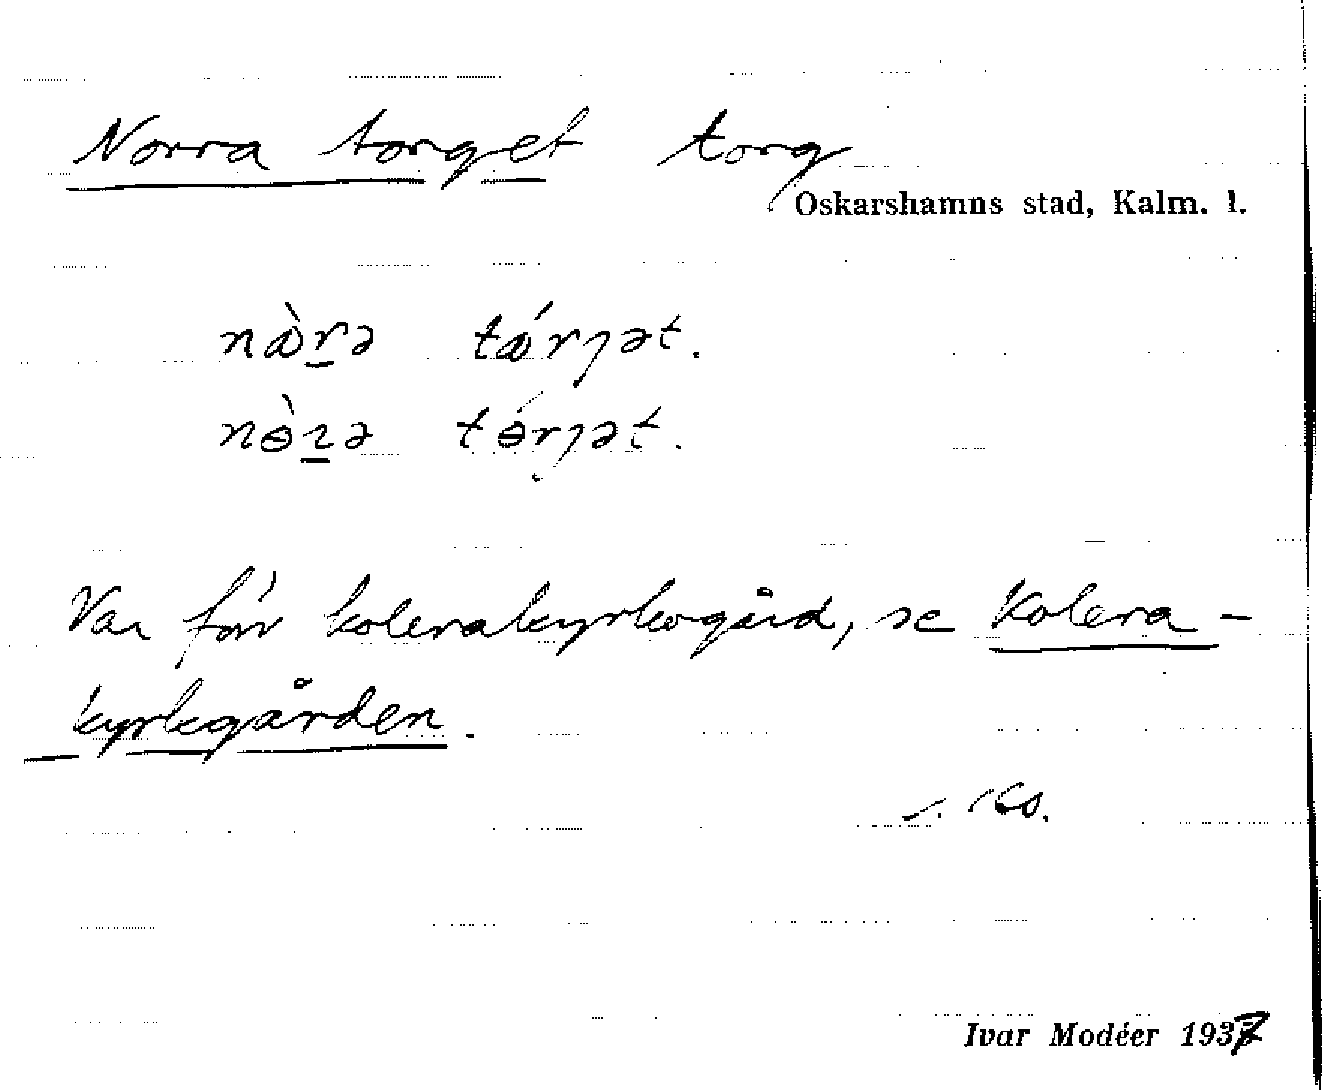 Norra torget torg
Oskarshamns stad, Kalm. l.
Var förr kolerakyrkogård, se Kolera-
kyrkgården.
Ivar Modéer 1937